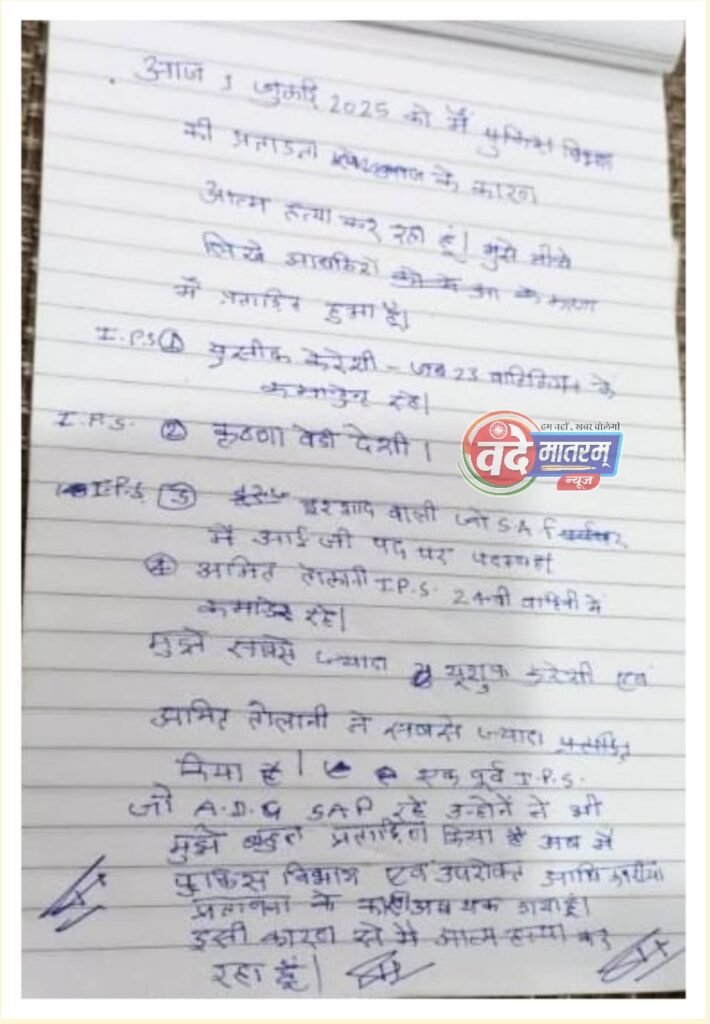 आज 1 जुलाई 2025 को मैं पुलिस विभाग
की प्रताडना के कारण
आत्म हत्या कर रहा हूं। मुझे नीचे
लिखे
मैं प्रताडित हुआ है।
I.P.S ① युसीफ केरेशी - जब 23 वाहिनी के
कमाडेन्ट रहे।
हम नहीं, खबर बोलेगी
वंदे मातरम्
न्यूज
I.P.S. ② कृष्णा वेडी देशी।
I.P.S. 3 इरशाद वाली जो SAF
में आई जी पद पर पदस्थ
④ अमित तोलानी I.P.S. 24वी वाहिनी में
कमाडेन्ट रहे।
मुझे सबसे ज्यादा यूशुफ केरेशी एवं
अमित तोलानी ने सबसे ज्यादा प्रताडित
किया है। एक पूर्व I.P.S.
जो A.D.G SAF रहे उन्होनें ने भी
मुझे बहुत प्रताडित किया है अब मैं
पुलिस विभाग एवं उपरोक्त
प्रताडना के थक गया हूं।
इसी कारण से मैं आत्म हत्या कर
रहा हूँ।